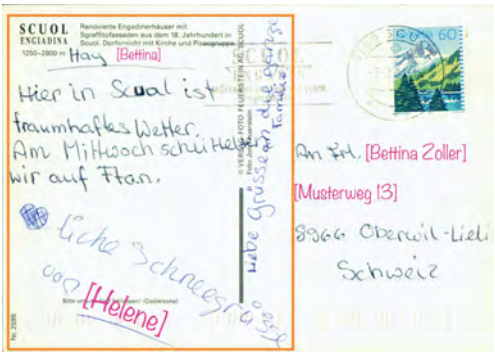 SCUOL
ENGIADINA
1250–2800 m
Renovierte Engadinerhäuser mit
Sgraffitofassaden aus dem 18. Jahrhundert in
Scuol. Dorfansicht mit Kirche und Pisocgruppe
Hay [Bettina]
Hier in Scual ist
traumhaftes Wetter.
Am Mittwoch
wir auf Ftan.
liche Schneegrüsse
von [Helene]
Nr. 2599
© VERLAG + FOTO FEUERSTEIN AG, SCUOL
liebe Grüsse an die ganze
Familie
SCUOL
60
An Frl. [Bettina Zoller]
[Musterweg 13]
8966 Oberwil-Lieli
Schweiz